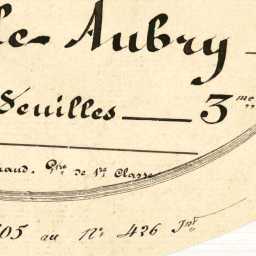 le Aubry
Feuilles — 3me
aud. Gre de 1re Classe
505 au No 426 Inf